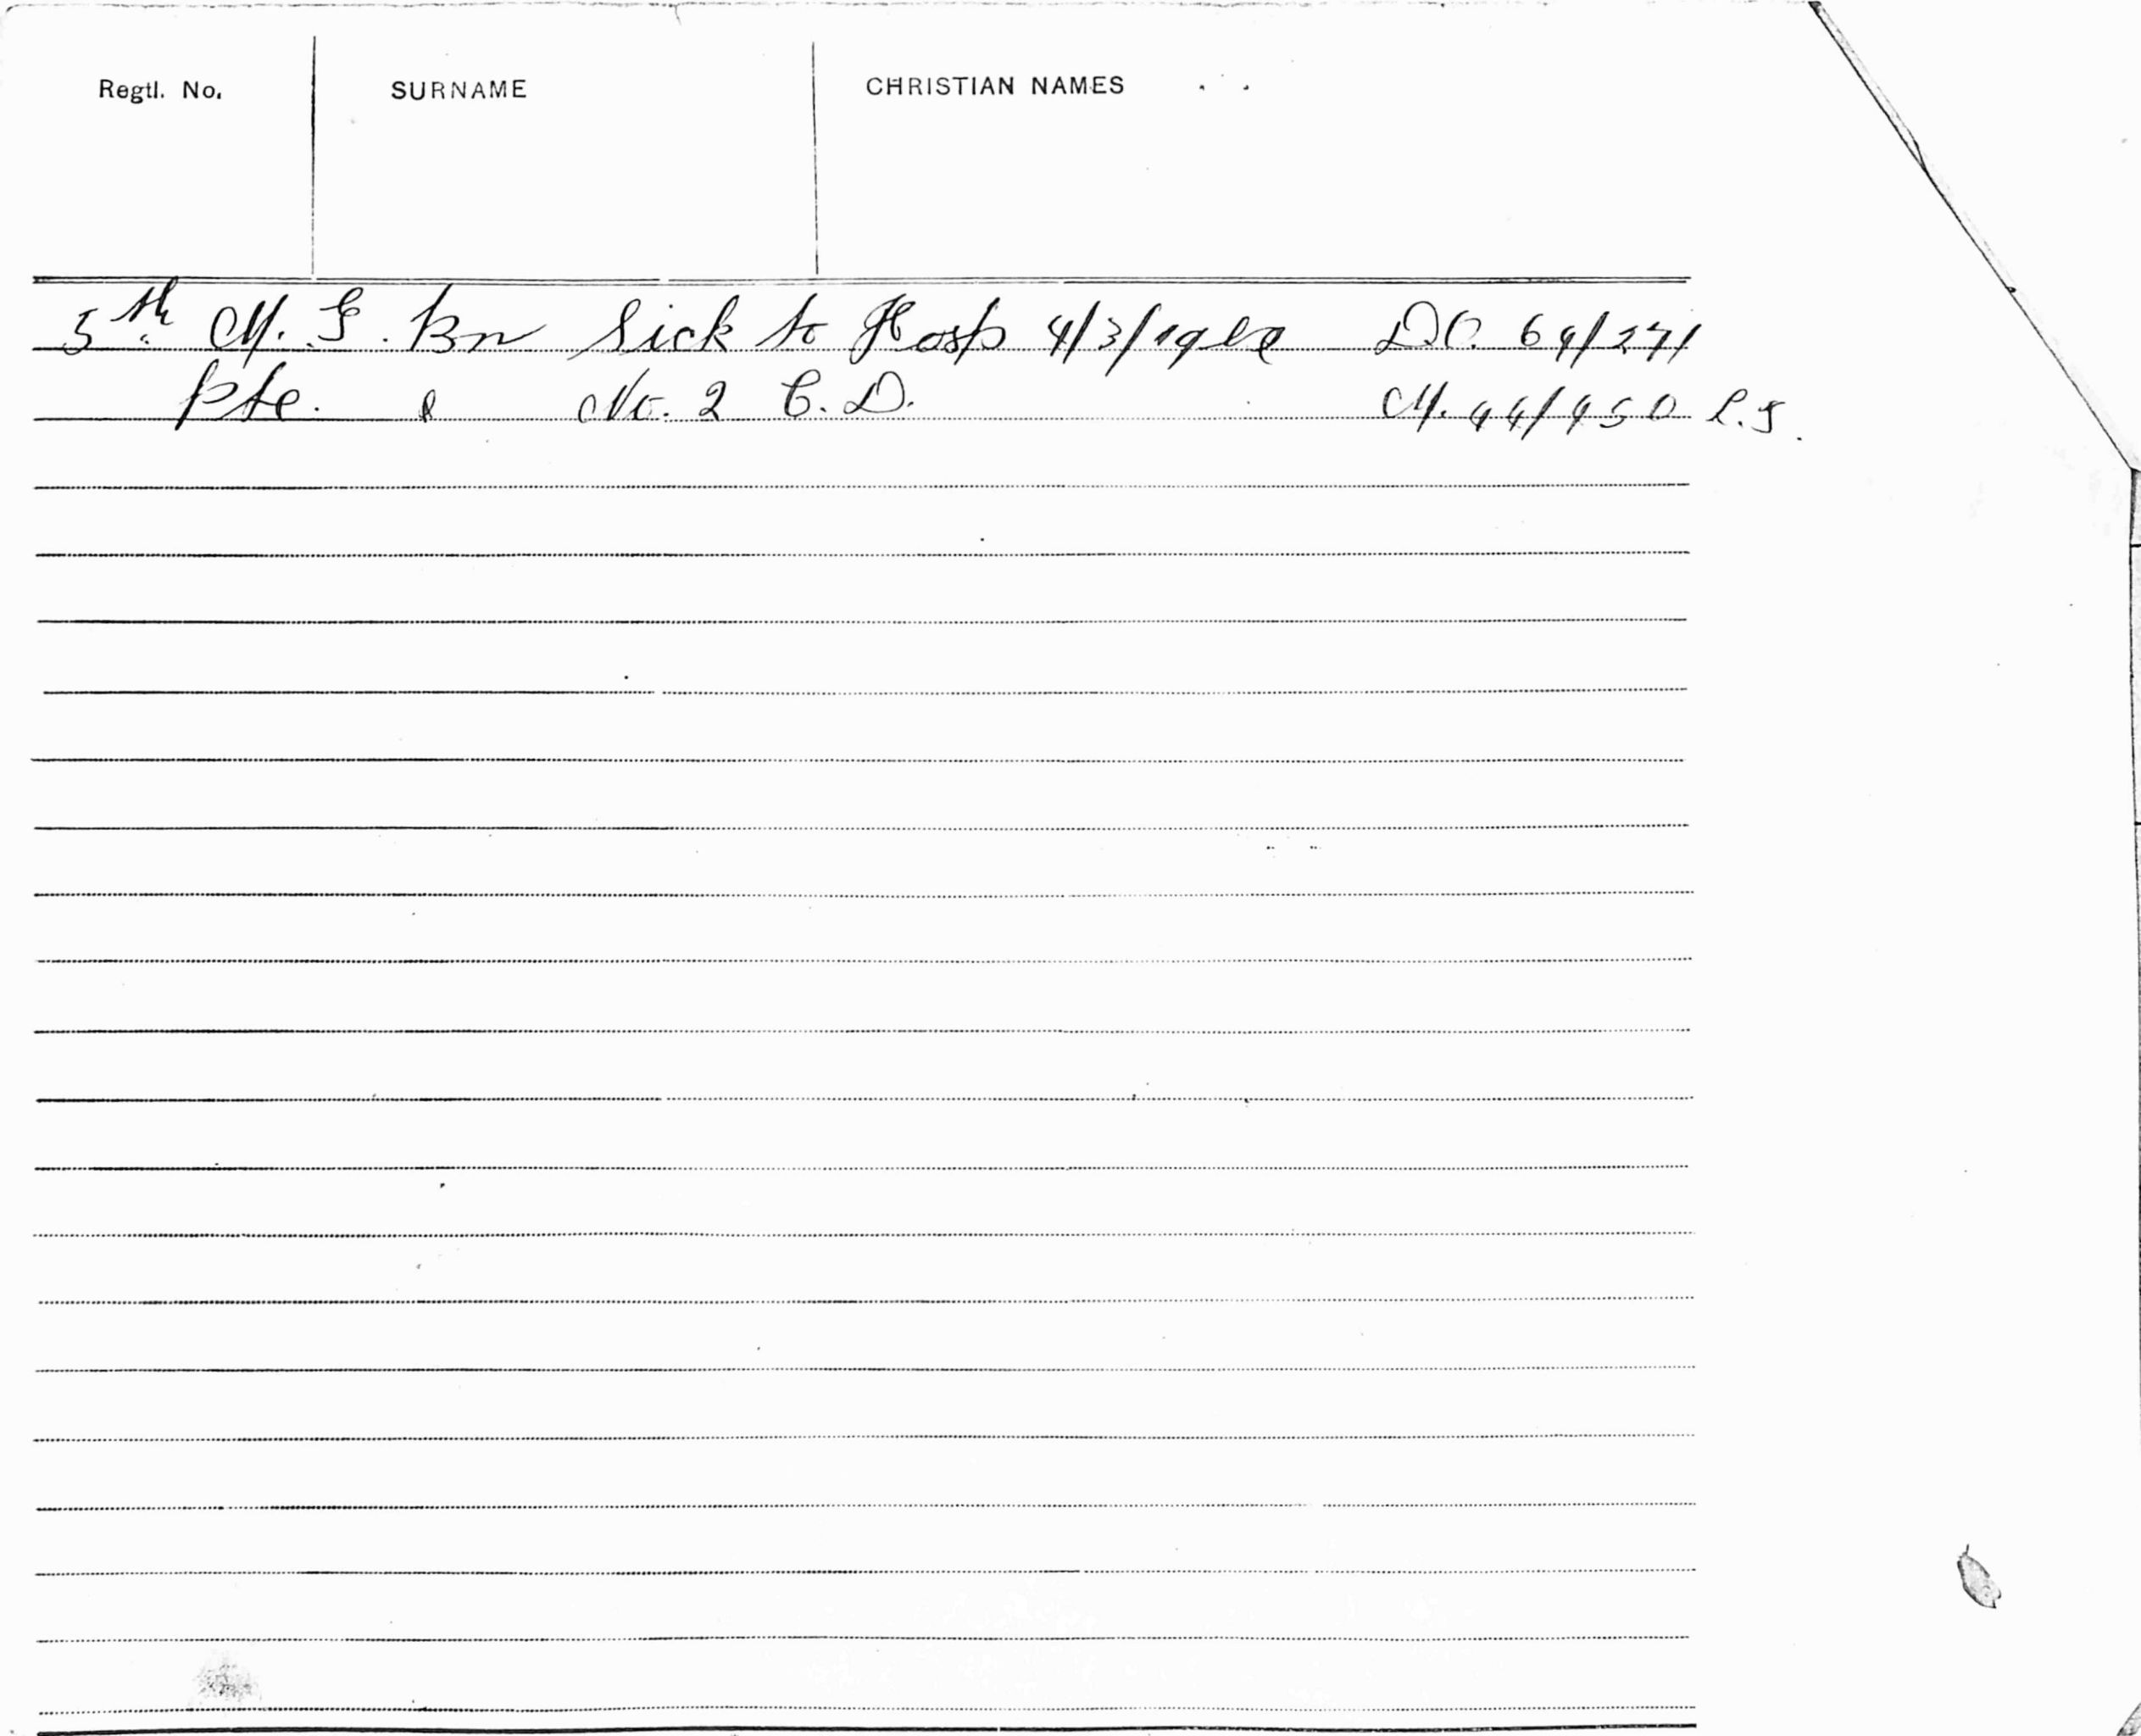 Regtl. No. SURNAME CHRISTIAN NAMES
5th M. G. Bn Sick to Hosp 4/3/19 DO. 64/271
Pte. No. 2 C. D. M. 44/450 L.S.